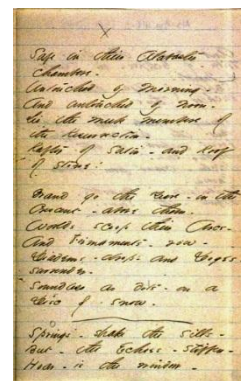 Safe in their Alabaster
Chambers -
Untouched by morning -
And untouched by noon -
Lie the meek members of
the Resurrection -
Rafter of Satin - and Roof
of Stone!
Grand go the Years - in the
Crescent - above them -
Worlds scoop their Arcs -
And Firmaments - row -
Diadems - drop - and Doges -
surrender -
Soundless as dots - on a
Disc of snow -
Springs - shake the Sills -
But - the Echoes - stiffen -
Hoar - is the window -